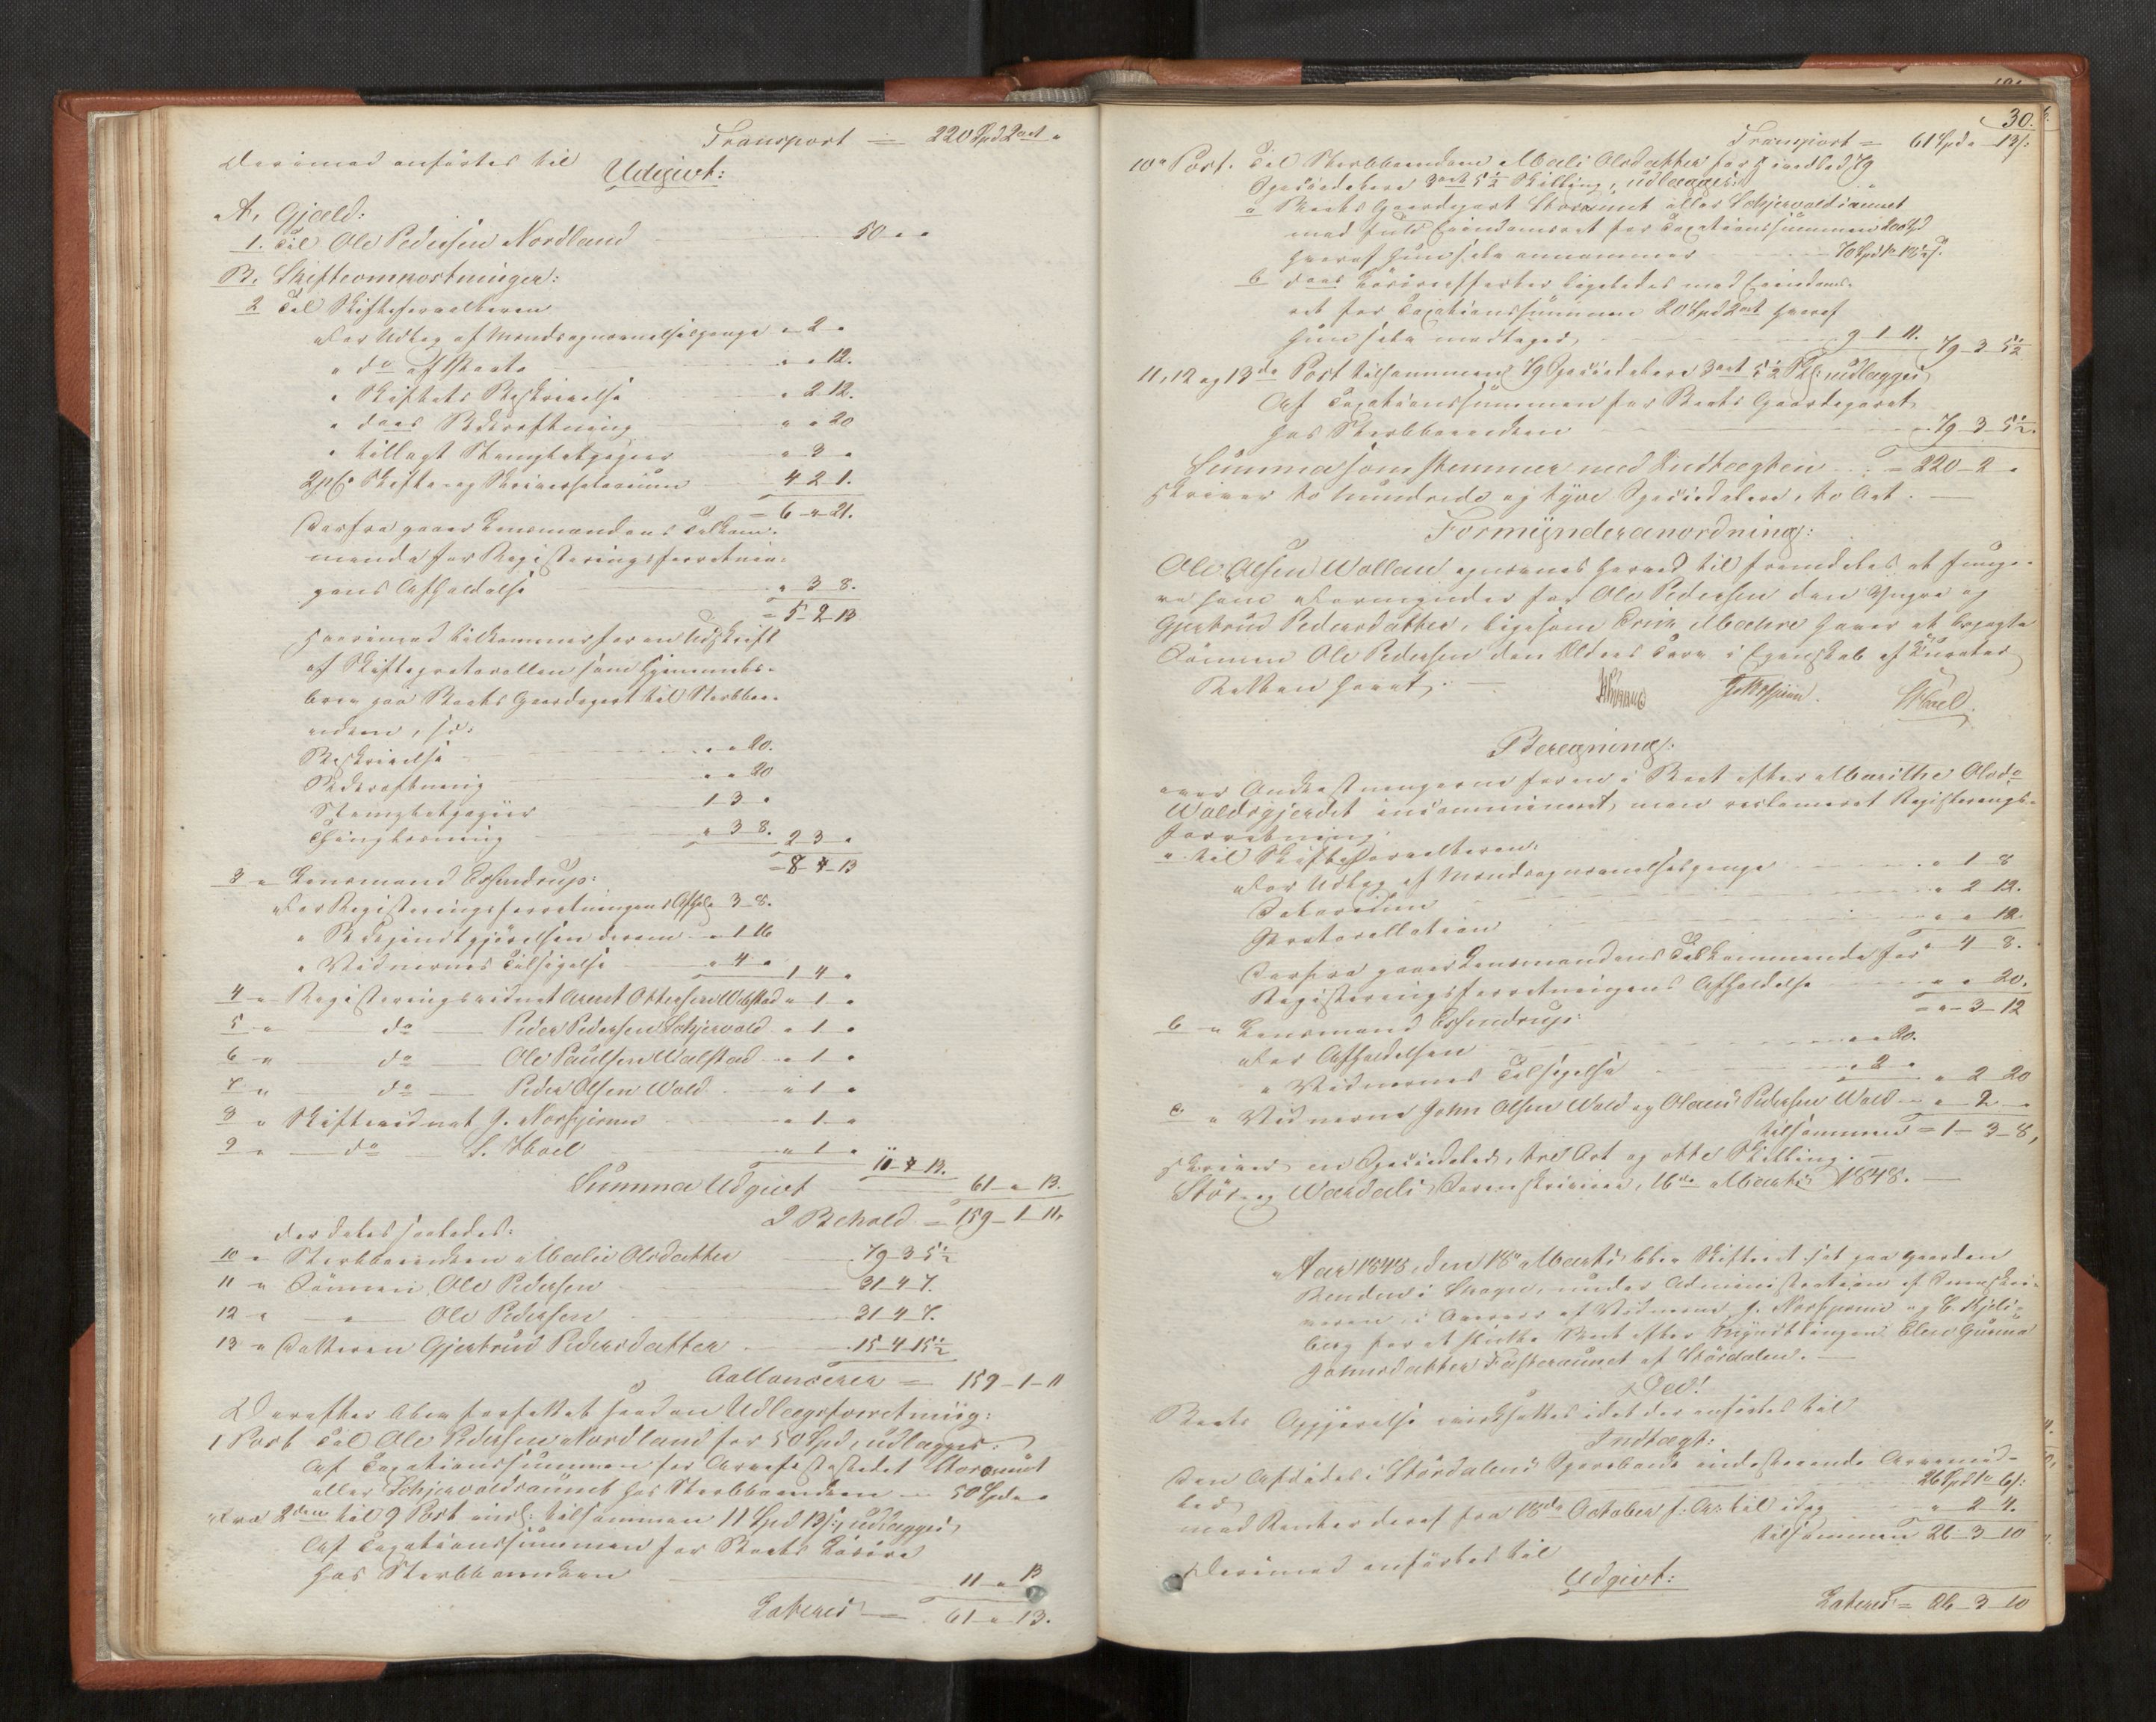 Transport = 220 Spd 2 ort "
Derimod anføres til
Udgivt:
A, Gjæld:
1. Til Ole Pedersen Nordland 50 " "
B, Skifteomkostninger:
2 Til Skifteforvalteren
For Udtog af Mandsopnævnelsespenge " 2 "
" do af Skats " " 12.
" Skiftets Beskrivelse " 2 12.
" dets Bekræftning " " 20
" tillagt Stemplet papir " 3 "
2 pCt Skifte- og Skriversalarium 4 2 1.
= 6 " 21.
Derfra gaaer Lensmandens Tilkom-
mende for Registeringsforretnin-
gens Afholdelse " 3 8.
= 5 2 13
Hvorimod tilkommer for en Udskrift
af Skifteprotocollen som Hjemmels-
brev paa Boets Gaardepart til Sterbboe-
enken, so:
Beskrivelse " " 20.
Bekræftning " " 20
Stemplet papir 1 3 "
Thinglæsning " 3 8. 2 3 "
= 8 " 13
3 " Lensmand Essendrup:
For Registeringsforretningens Afhold 3 8.
" Bekjendtgjørelsen derom " 1 16
" Vidnernes Tilsigelse " 4 " 1 4 "
4 " Registeringsvidnet Arent Ottersen Walstad " 1 "
5 " do Peder Pedersen Schjervold " 1 "
6 " do Ole Paulsen Walstad " 1 "
7 " do Peder Olsen Wold " 1 "
8 " Skiftevidnet J. Norhjem " 1 "
9 " do L. Hoel " 1 " 11 " 13.
Summa Udgivt 61 " 13.
I Behold = 159 1 11.
der deles saaledes:
10 " Sterbboenken Mali Olsdatter 79 3 5½
11 " Sønnen Ole Pedersen 31 4 7.
12 " " Ole Pedersen 31 4 7.
13 " Datteren Gjertrud Pedersdatter 15 4 15½
Ballancerer = 159 1 11
Derefter blev forfattet saadan Udlægsforretning:
1 Post Til Ole Pedersen Nordland for 50 Spd, udlægges:
Af Taxationssummen for Arvefæstestedet Storaunet
eller Schjervoldsaunet hos Sterbboenken 50 Spd " "
Fra 2den til 9 Post incl: tilsammen 11 Spd 13 s:, udlægges,
Af Taxationssummen for Boets Løsøre
hos Sterbboenken 11 " 13
Lateres = 61 " 13.
30.
Transport = 61 Spd " 13 s:
10de Post. Til Sterbboenken Mali Olsdatter for Hovedlod 79
Speciedalere 3 ort 5½ Skilling, udlægges:
a Boets Gaardepart Storaunet eller Schjervoldsaunet
med fuld Eiendomsret for Taxationssummen 200 Spd
hvoraf hun selv annammer 70 Spd 1 " 18½ s.
b dets Løsøreeffecter ligeledes med Eiendoms-
ret for Taxationssummen 20 Spd 2 ort hvoraf
hun selv modtager, 9 1 11. 79 3 5½
11, 12 og 13de Post tilsammen 79 Speciedalere 3 ort 5½ Sk: udlægges,
Af Taxationssummen for Boets Gaardepart,
hos Sterbboenken 79 3 5½.
Summa som stemmer med Indtægten = 220 2 "
skriver to hundrede og tyve Speciedalere, to Ort.
Formynderanordning:
Ole Olsen Wollan opnævnes herved til fremdeles at funge-
re som Formynder for Ole Pedersen den Yngre og
Gjertrud Pedersdatter, ligesom Erik Mæhre haver at besørge
Sønnen Ole Pedersen den Ældres Tarv i Egenskab af Curator.
Retten hævet,
J. Norhjem. L. Hoel.
Beregning:
over Omkostningerne for en i Boet efter Marithe Olsd:
Woldsgjerdet indkommen, men reclameret Registerings-
forretning.
a til Skifteforvalteren:
For Udtog af Mandsopnævnelsespenge " 1 8
Salarium " 2 12.
Protocollation " " 12.
" 4 8.
Derfra gaaer Lensmandens Tilkommende for
Registeringsforretningens Afholdelse " " 20.
= " 3 12
b " Lensmand Essendrup:
For Afholdelsen " " 20.
" Vidnernes Tilsigelse " 2 " " 2 20
c " Vidnerne John Olsen Wold og Oland Pedersen Wold " 2 "
tilsammen = 1 3 8,
skriver en Speciedaler, tre Ort og otte Skilling.
Stør- og Wærdals Sorenskriveri, 16de Marts 1848.
Aar 1848, den 18de Marts blev Skifteret sat paa Gaarden
i Skogn, under Administration af Sorenskri-
veren, i Overvær af Vidnerne J. Norhjem og
berg for at slutte Boet efter Gunna
Johnsdatter Fasteraunet af Størdalen.
Ved!
Boets Opgjørelse iværksattes idet der anføres til
Indtægt:
Den Afdødes i Størdalens Sparebank indestaaende Arvemid-
ler 26 Spd 1 " 6 s:
med Renter deraf fra 18de October f. A: til idag " 2 4.
tilsammen 26 3 10
Derimod anføres til
Udgivt:
Lateres = 26 3 10